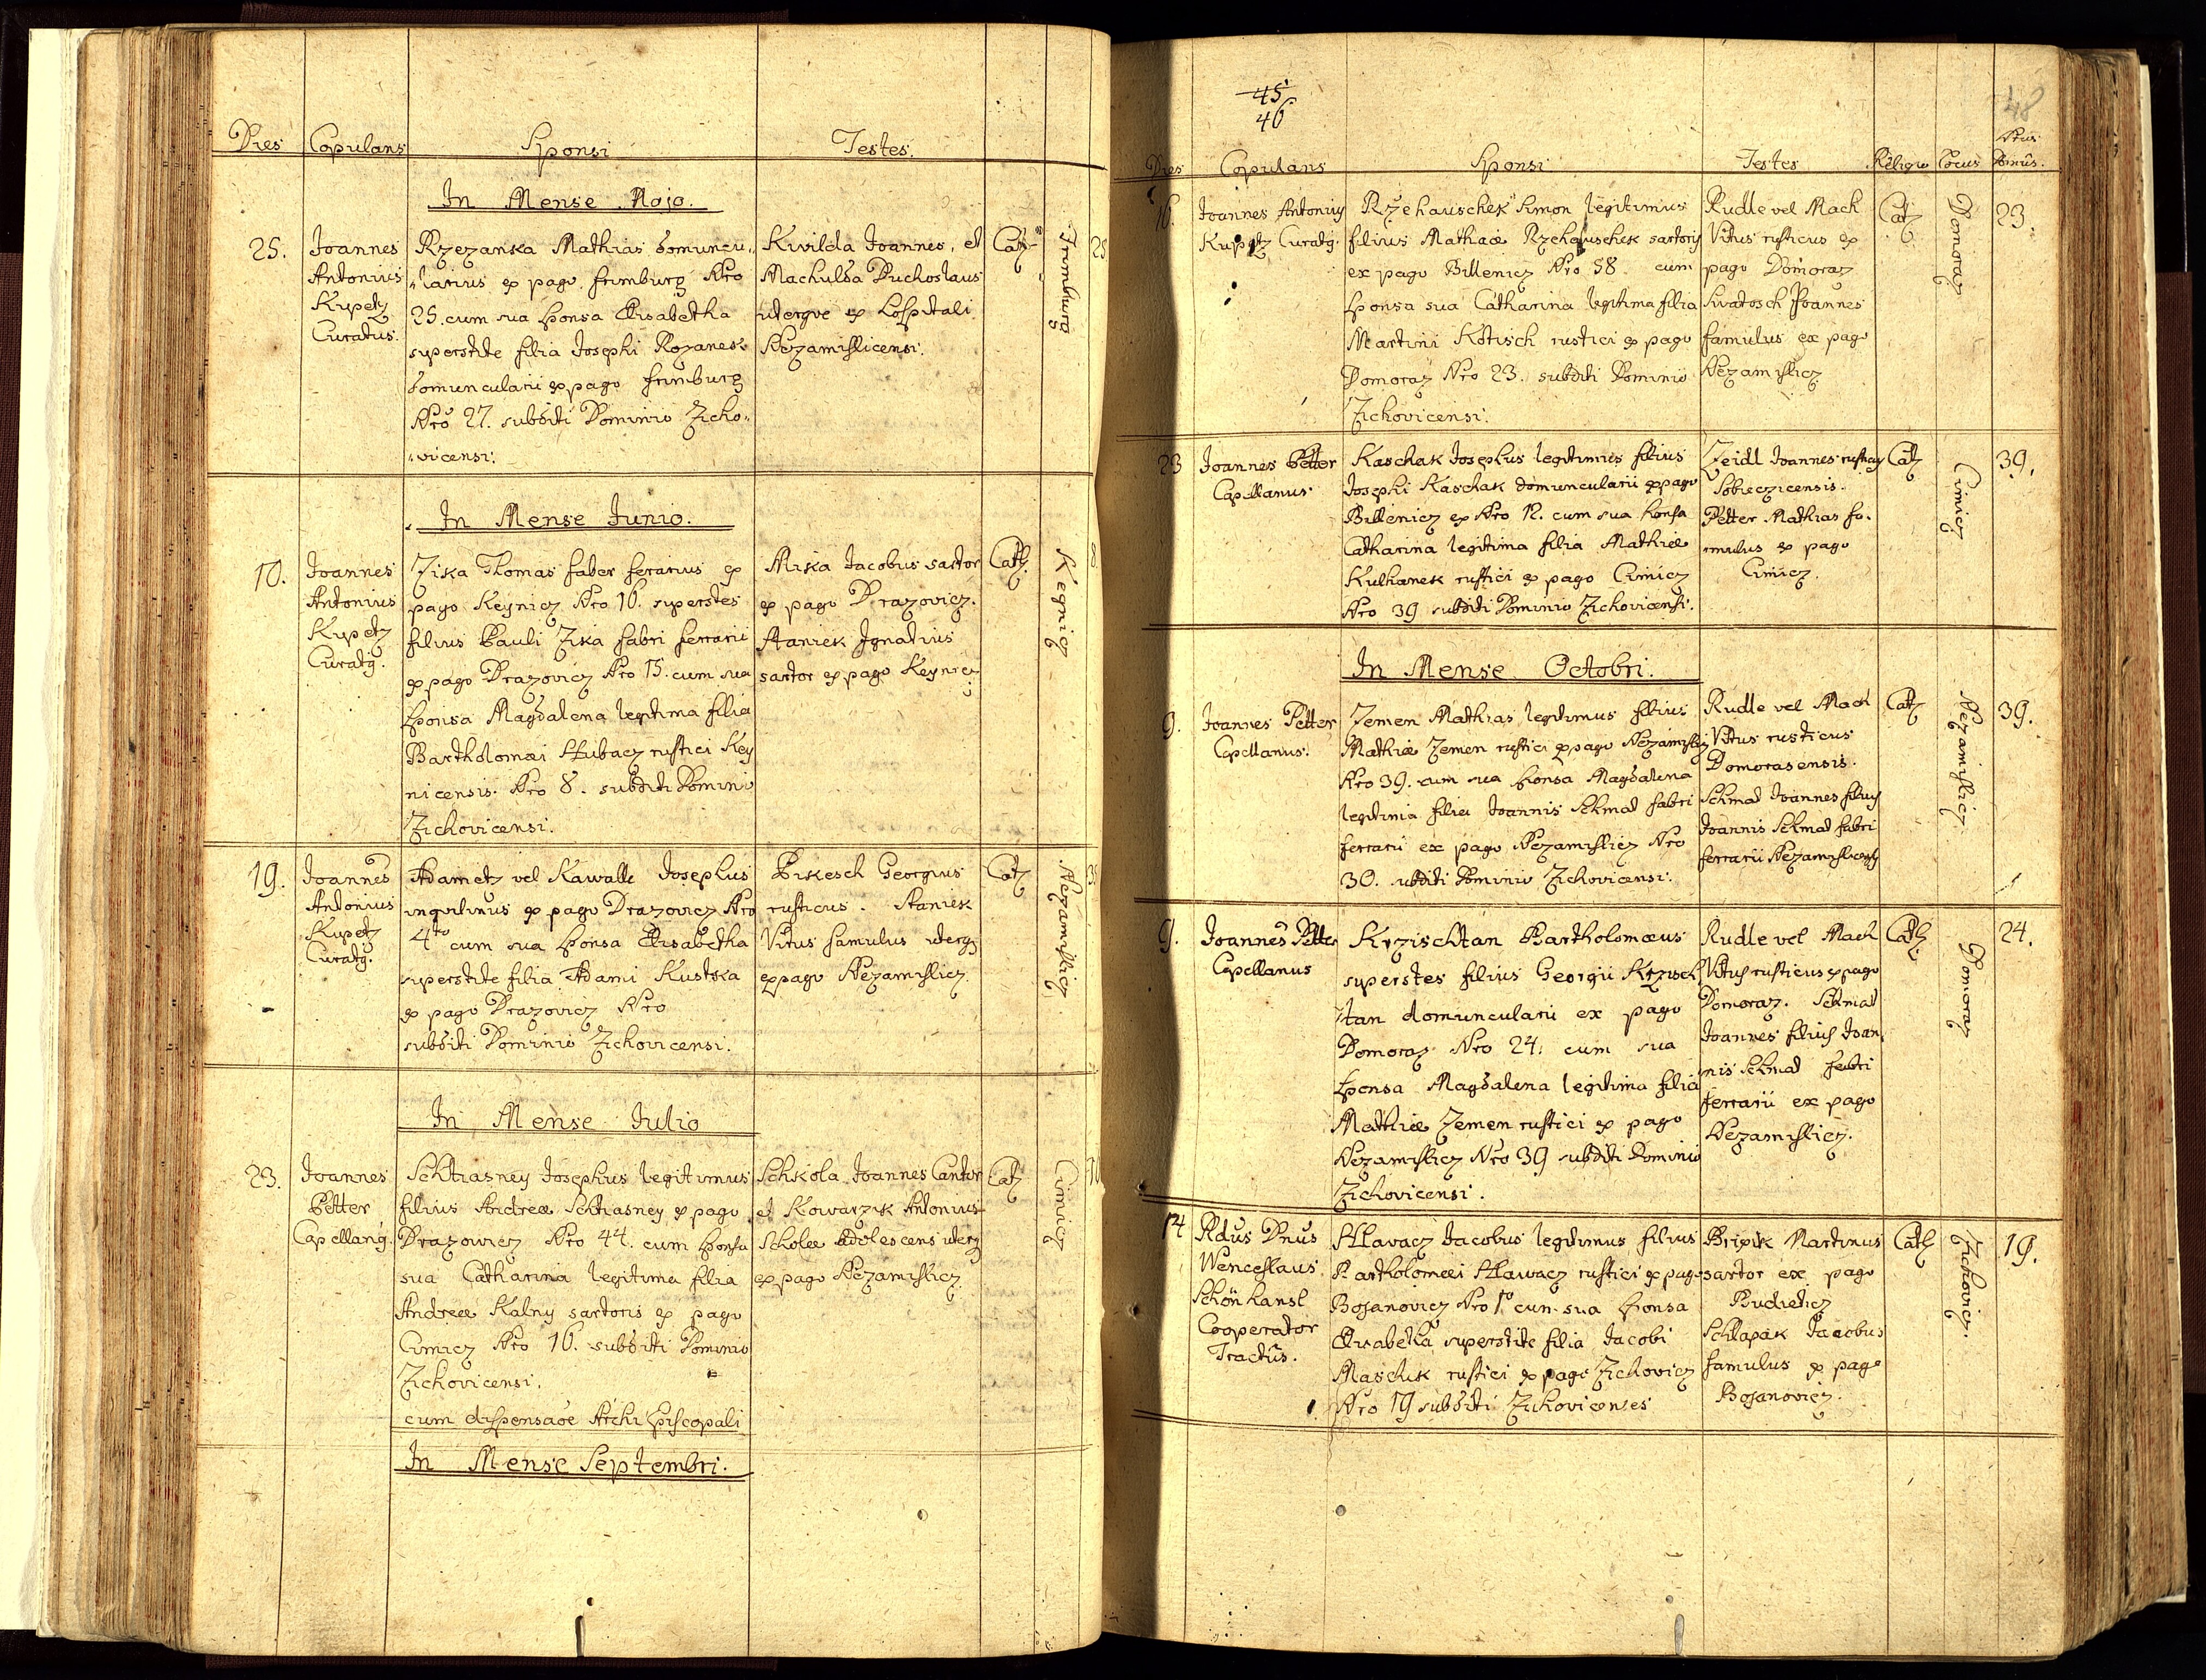 Dies Copulans Sponsi Testes.
In Mense Majo.
25.
Joannes
Antonius
Kupetz
Curatus.
Rzezanka Mathias domuncu„
„larius ex pago frimburg Nro
25. cum sua sponsa Elisabetha
superstite filia Josephi Rozanek
domuncularii ex pago frimburg
Nro 27. subditi Dominio Zicho„
„vicensi.
Kwilda Joannes, et
Machulda Duchoslaus
uterque ex Hospitali
Nezamislicensi.
Cath.
Frimburg
25
In Mense Junio.
10.
Joannes
Antonius
Kupetz
Curatg.
Ziska Thomas faber ferarius ex
pago Keynicz Nro 16. superstes
filius Pauli Ziska fabri ferrarii
ex pago Drazovicz Nro 15. cum sua
sponsa Magdalena legitima filia
Bartholomæi Hubacz rustici Key
nicensis. Nro 8. subditi Dominio
Zichovicensi.
Miska Jacobus sartor
ex pago Drazovicz.
Staniek Ignatius
sartor ex pago Keynicz
Cath.
Keynicz
8
19.
Joannes
Antonius
Kupetz
Curatg.
Adametz vel Kawalle Josephus
inquilinus ex pago Drazovicz Nro
4to cum sua sponsa Elisabetha
superstite filia Adami Kustska
ex pago Drazovicz Nro
subditi Dominio Zichovicensi.
Pikesch Georgius
rusticus. Staniek
Vitus famulus uterq
ex pago Nezamislicz.
Cath
Nezamislicz
In Mense Julio
23.
Joannes
Petter
Capellang.
Schtiasney Josephus legitimus
filius Andreæ Schtiasney ex pago
Drazowicz Nro 44. cum sponsa
sua Catharina legitima filia
Andreæ Kalny sartoris ex pago
Cimicz Nro 16. subditi Dominio
Zichovicensi.
cum dispensaõe Archi Episcopali
Schkola Joannes Cantor
et Kowarzik Antonius
scholæ adolescens uterq
ex pago Nezamislicz
Cath
Cimicz
In Mense Septembri.
45
46
48
Dies Copulans Sponsi Testes Religio Locus Nrus Domûs.
16.
Joannes Antonius
Kupetz Curatg.
Rzehauschek Simon legitimus
filius Mathiæ Rzehauschek sartoris
ex pago Billenicz Nro 58. cum
sponsa sua Catharina legitima filia
Martini Kotisch rustici ex pago
Domoraz Nro 23. subditi Dominio
Zichovicensi.
Rudle vel Mach
Vitus rusticus ex
pago Domoraz
Swatosch Joannes
famulus ex pago
Nezamislicz
Cath
Domoraz
23.
23
Joannes Petter
Capellanus.
Kaschak Josephus legitimus filius
Josephi Kaschak domuncularii ex pago
Billenicz ex Nro 12. cum sua sponsa
Catharina legitima filia Mathiæ
Kulhanek rustici ex pago Cimicz
Nro 39 subditi Dominio Zichovicensi.
Zeidl Joannes rusticus
Sobieczicensis.
Petter Mathias fa„
mulus ex pago
Cimicz.
Cath
Cimicz
39.
In Mense Octobri.
9.
Joannes Petter
Capellanus.
Zemen Mathias legitimus filius
Mathiæ Zemen rustici ex pago Nezamislicz
Nro 39. cum sua sponsa Magdalena
legitima filia Joannis Schmad fabri
ferrarii ex pago Nezamislicz Nro
30. subditi Dominio Zichovicensi.
Rudle vel Mach
Vitus rusticus
Domorasensis.
Schmad Joannes filius
Joannis Schmad fabri
ferrarii Nezamislicensis
Cath
Nezamislicz.
39.
9.
Joannes Petter
Capellanus
Krzischtan Bartholomæus
superstes filius Georgii Krzisch
tan domuncularii ex pago
Domoraz Nro 24. cum sua
sponsa Magdalena legitima filia
Mathiæ Zemen rustici ex pago
Nezamislicz Nro 39 subditi Dominio
Zichovicensi.
Rudle vel Mach
Vitus rusticus ex pago
Domoraz. Schmad
Joannes filius Joan„
nis Schmad fabri
ferrarii ex pago
Nezamislicz.
Cath
Domoraz
24.
14
Rdus Dnus
Wenceslaus
Schönhansl
Cooperator
Tractûs.
Hlavacz Jacobus legitimus filius
Bartholomæi Hlawacz rustici ex pago
Bojanovicz Nro 1o cum sua sponsa
Elisabetha superstite filia Jacobi
Maschek rustici ex pago Zichovicz
Nro 19 subditi Zichovicenses
Brixik Martinus
sartor ex pago
Budieticz
Schlapak Jacobus
famulus ex pago
Bojanovicz.
Cath
Zichovicz.
19.